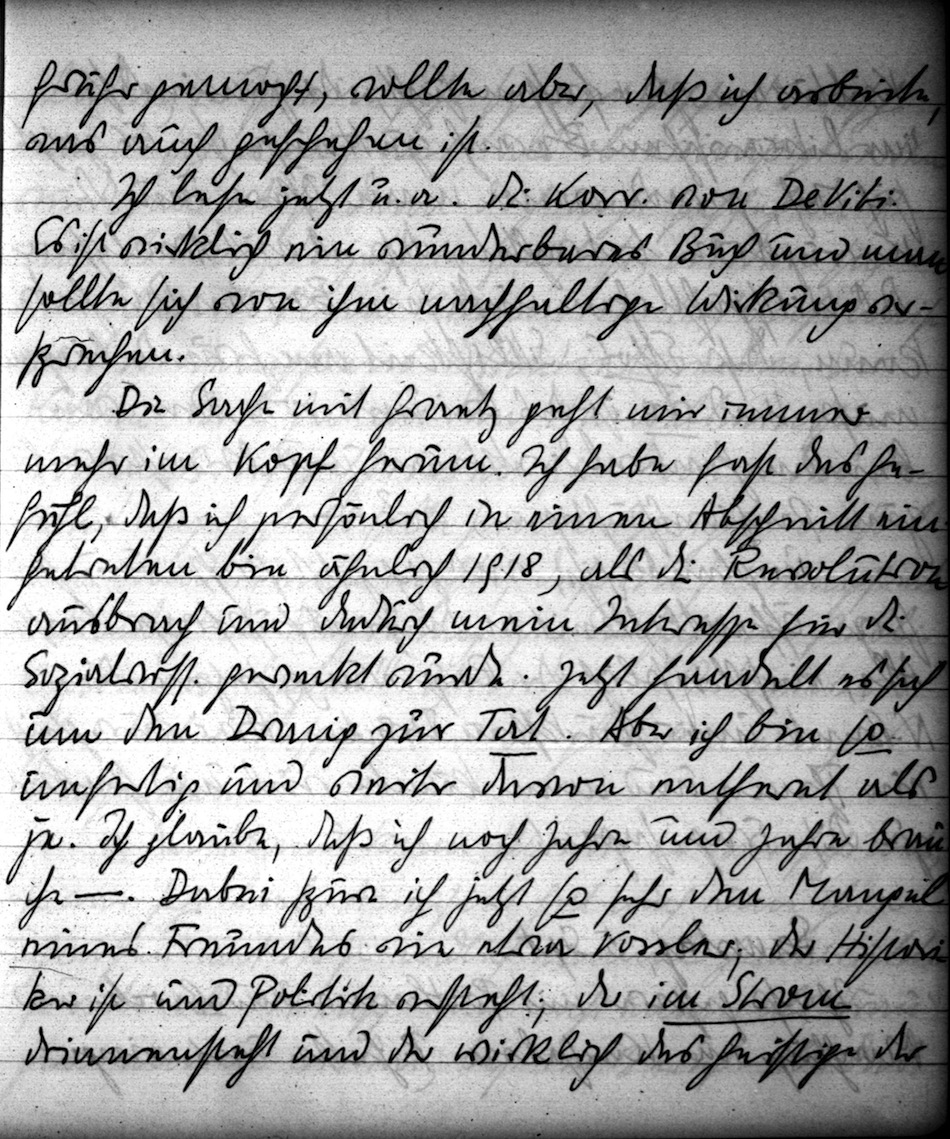 früher gemocht, wollte aber, daß ich arbeite,
was auch geschehen ist.
Ich lese jetzt u. a. die Korr. von De Viti.
Es ist wirklich ein wunderbares Buch und man
sollte sich von ihm nachhaltige Wirkung ver-
sprechen.
Die Sache mit Frantz geht mir immer
mehr im Kopf herum. Ich habe fast das Ge-
fühl, daß ich persönlich in einen Abschnitt ein
getreten bin ähnlich 1918, als die Revolution
ausbrach und dadurch mein Interesse für die
Sozialwiss. geweckt wurde. Jetzt handelt es sich
um den Drang zur Tat. Aber ich bin so
unfertig und weiter davon entfernt als
je. Ich glaube, daß ich noch Jahre und Jahre brau
che —. Dabei spüre ich jetzt so sehr den Mangel
eines Freundes wie etwa Vossler, der Histori
ker ist und Politik versteht, der im Strom
drinnensteht und der wirklich das Geistige der